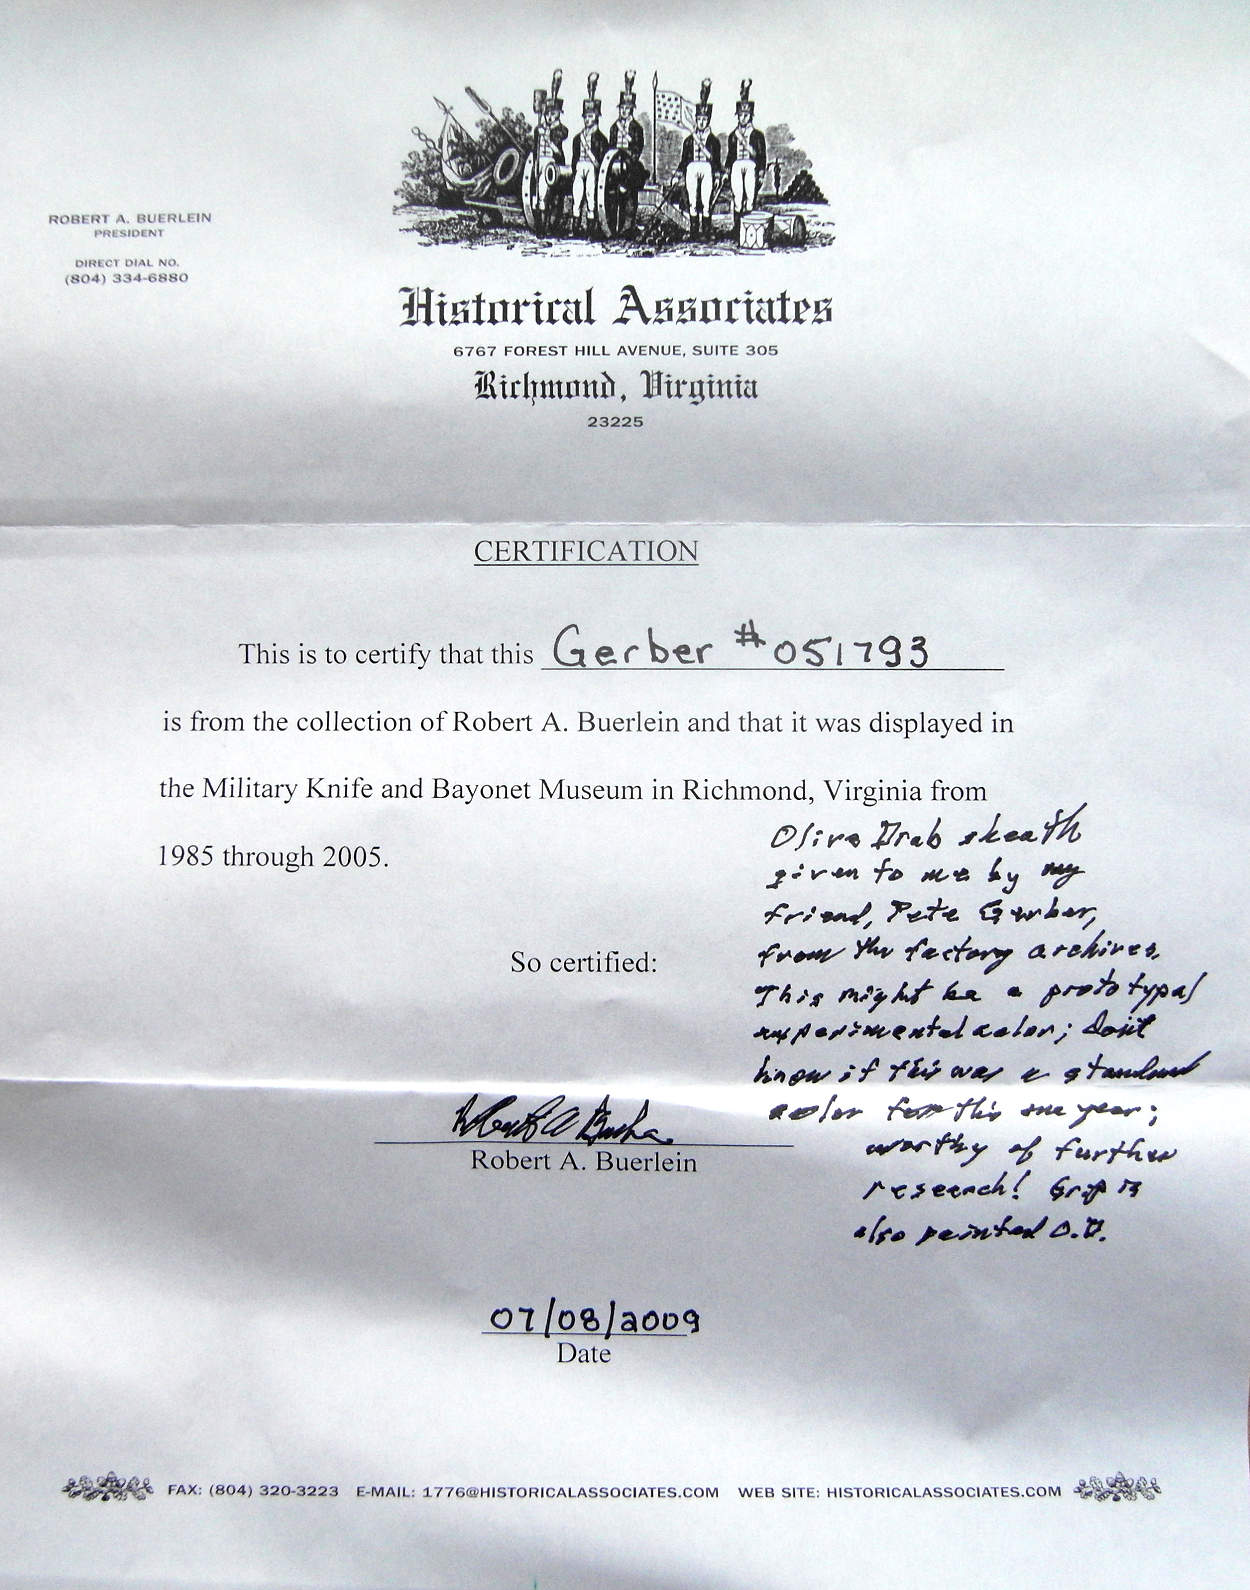 ROBERT A. BUERLEIN
PRESIDENT
DIRECT DIAL NO.
(804) 334-6880
Historical Associates
6767 FOREST HILL AVENUE, SUITE 305
Richmond, Virginia
23225
CERTIFICATION
This is to certify that this Gerber #051793
is from the collection of Robert A. Buerlein and that it was displayed in
the Military Knife and Bayonet Museum in Richmond, Virginia from
1985 through 2005.
Olive Drab sheath
given to me by my
friend, Pete Gerber,
from the factory archives.
This might be a prototypal
experimental color; don't
know if this was a standard
color for this one year;
worthy of further
research! Grip is
also painted O.D.
So certified:
Robert A. Buerlein
Robert A. Buerlein
07/08/2009
Date
FAX: (804) 320-3223 E-MAIL: 1776@HISTORICALASSOCIATES.COM WEB SITE: HISTORICALASSOCIATES.COM